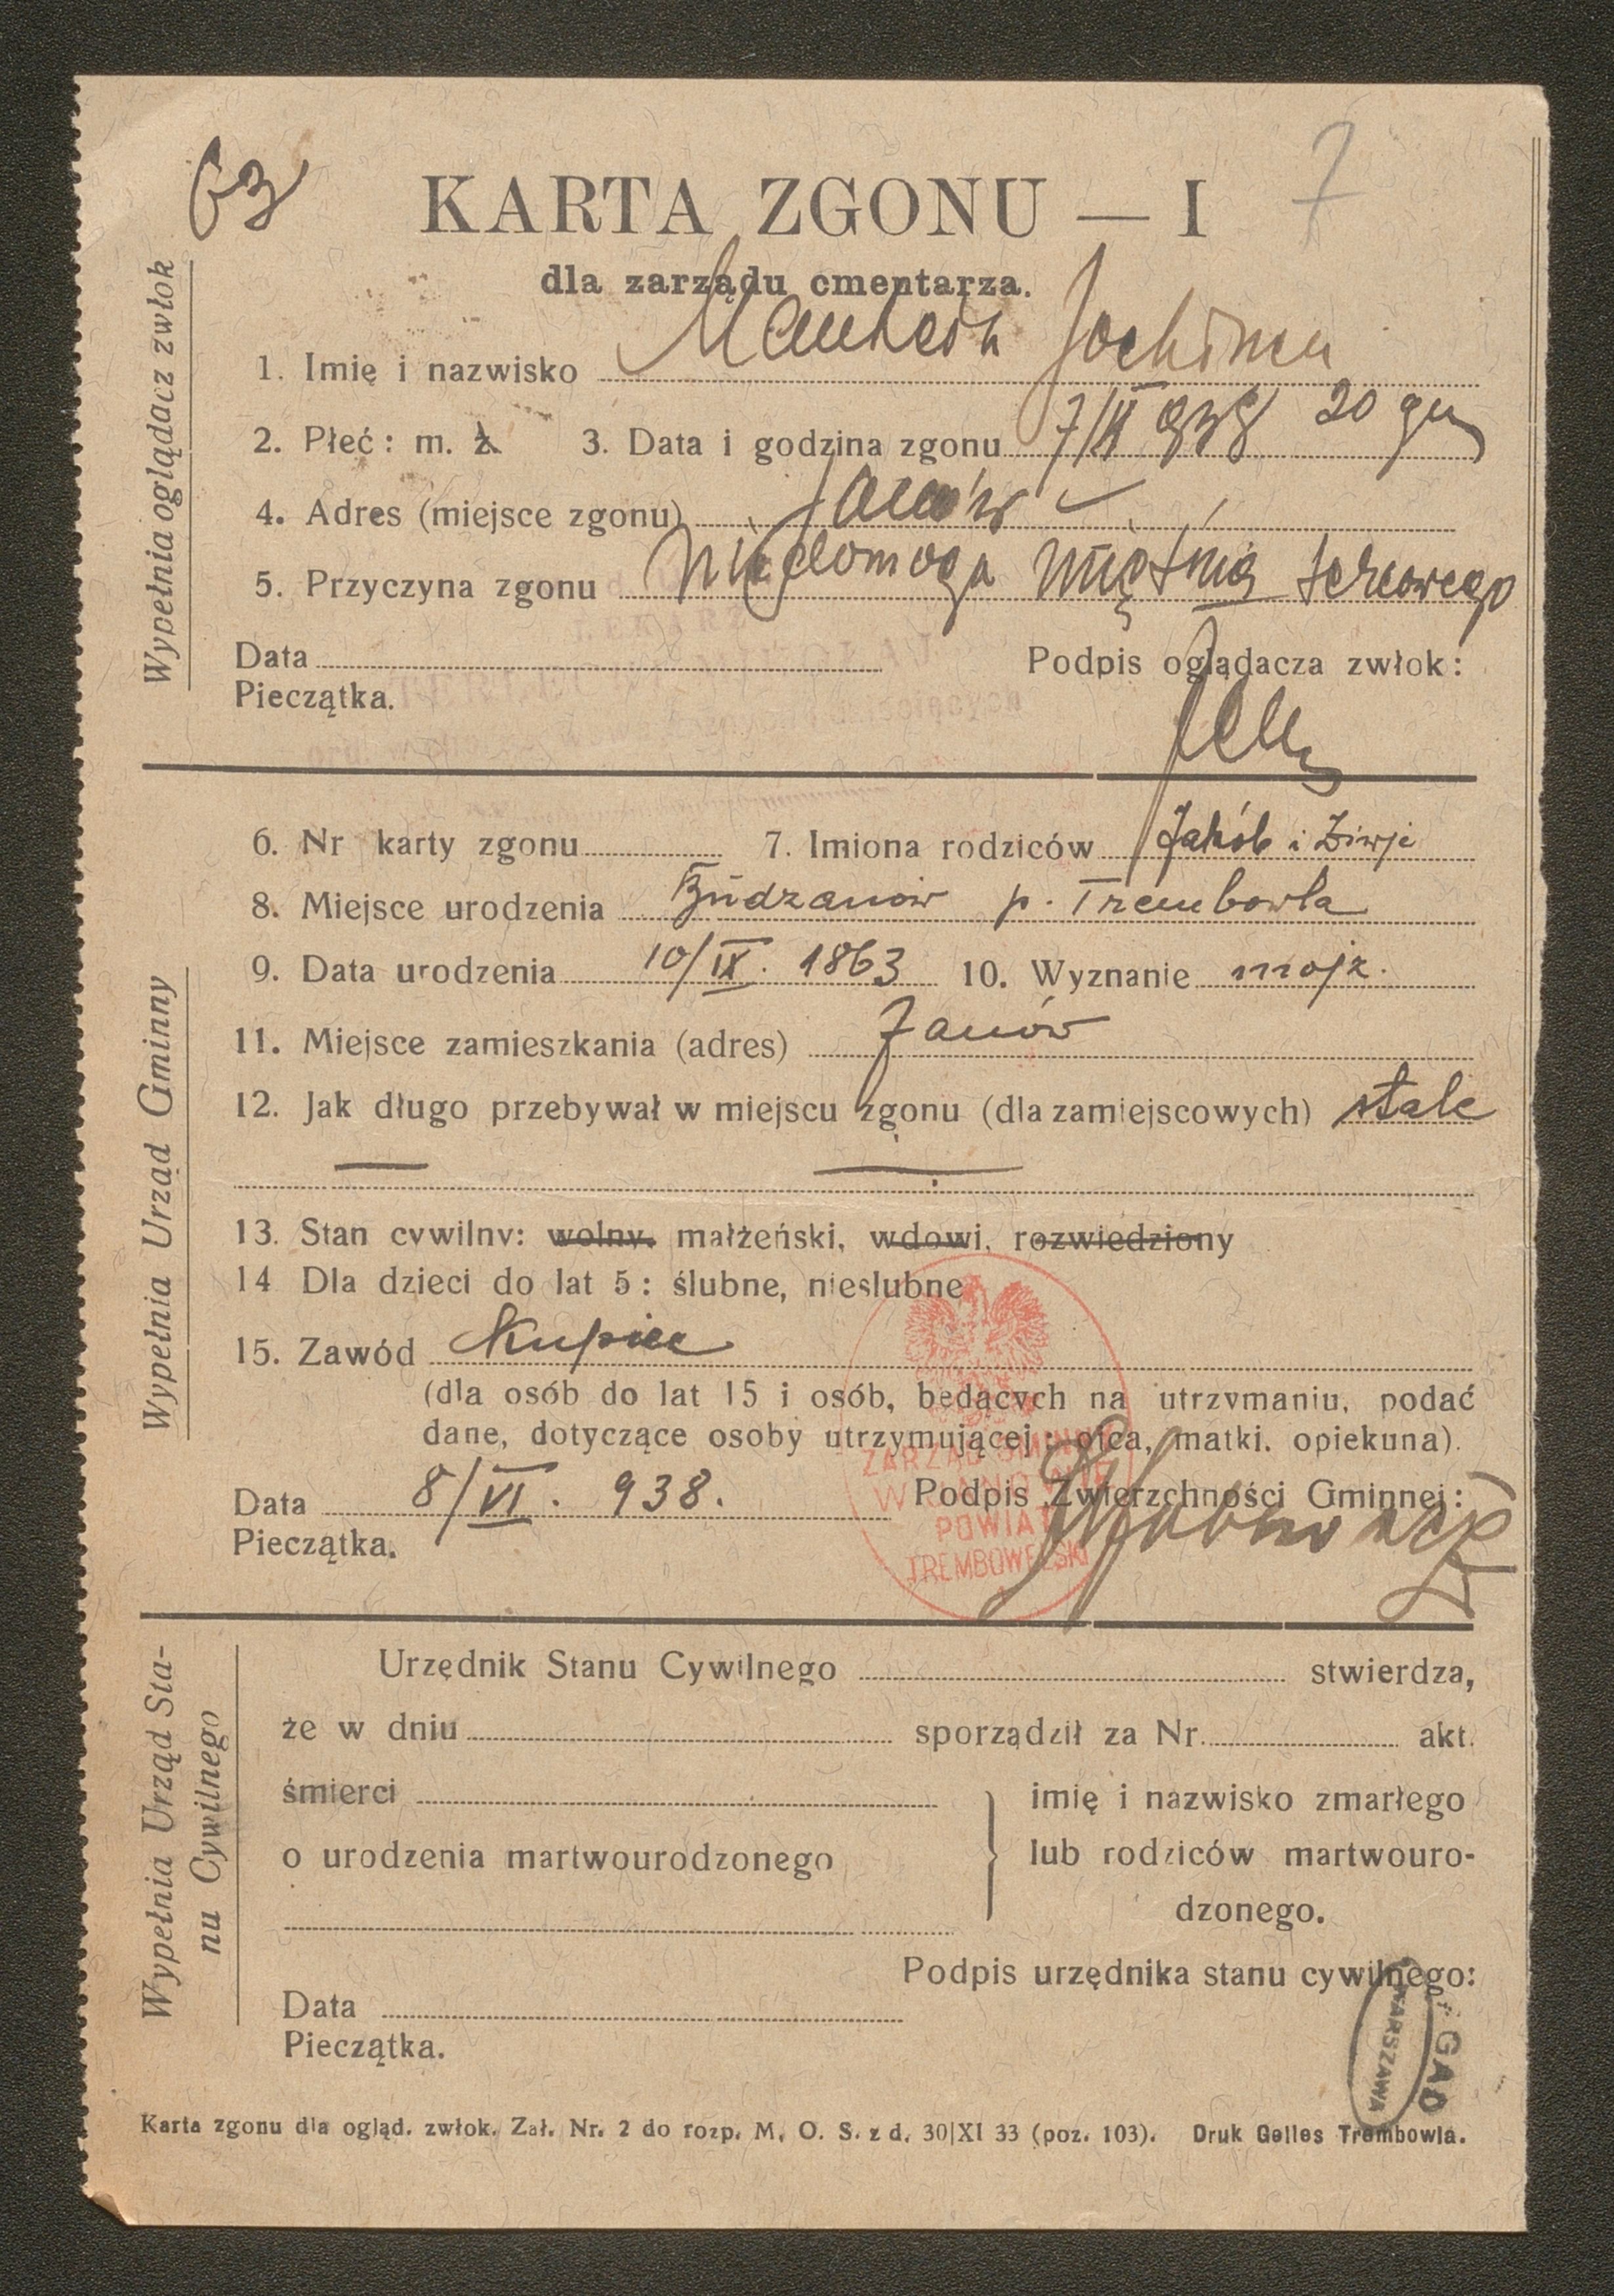 63
7
KARTA ZGONU — I
dla zarządu cmentarza.
Wypełnia oglądacz zwłok
1. Imię i nazwisko Jochinen
2. Płeć: m. ż. 3. Data i godzina zgonu 7/VI 938 20 g
4. Adres (miejsce zgonu) Janów
5. Przyczyna zgonu Niedomoga mięśnia sercowego
Data
Podpis oglądacza zwłok:
Pieczątka.
Wypełnia Urząd Gminny
6. Nr karty zgonu 7. Imiona rodziców Jakób i
8. Miejsce urodzenia Budzanów p. Trembowla
9. Data urodzenia 10/IX. 1863 10. Wyznanie mojż.
11. Miejsce zamieszkania (adres) Janów
12. Jak długo przebywał w miejscu zgonu (dla zamiejscowych) stale
13. Stan cywilny: wolny, małżeński, wdowi, rozwiedziony
14 Dla dzieci do lat 5: ślubne, nieslubne
15. Zawód Kupiec
(dla osób do lat 15 i osób, będących na utrzymaniu, podać
dane, dotyczące osoby utrzymującej: ojca, matki. opiekuna).
Data 8/VI. 938. Podpis Zwierzchności Gminnej:
Pieczątka.
ZARZĄD GMINNY
W JANOWIE
POWIAT
TREMBOWELSKI
Wypełnia Urząd Sta-
nu Cywilnego
Urzędnik Stanu Cywilnego stwierdza,
że w dniu sporządził za Nr. akt.
śmierci imię i nazwisko zmarłego
o urodzenia martwourodzonego lub rodziców martwouro-
dzonego.
Podpis urzędnika stanu cywilnego:
Data
Pieczątka.
AGAD
WARSZAWA
Karta zgonu dla ogląd. zwłok. Zał. Nr. 2 do rozp. M. O. S. z d. 30|XI 33 (poz. 103). Druk Gelles Trembowla.